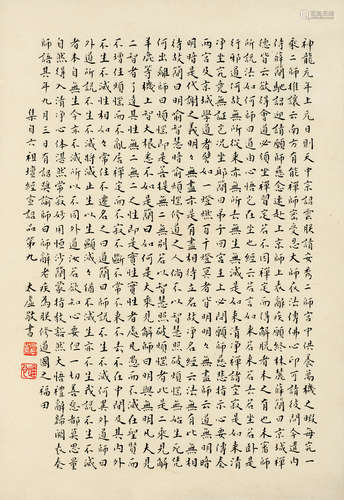 神龍元年上元日則天中宗詔雲朕請安秀二師宮中供養萬機之暇每究一
乘二師推讓云南方有能禪師密受忍大師衣法傳佛心印可請彼問今遣內
侍薛簡馳詔迎請願師慈念速赴上京師上表辭疾願終林麓薛簡曰京城禪
德皆云欲得會道必須坐禪習定若不因禪定而得解脫者未之有也未審師
所說法如何師曰道由心悟豈在坐也經云若言如來若去若來若坐若臥是
行邪道何故無所從來亦無所去無生無滅是如來清淨禪諸法空寂是如來清
淨坐究竟無證豈況坐耶簡曰弟子回宮主上必問願師慈悲指示心要傳奏
而言及京城學道者譬如一燈燃百千燈冥者皆明明明無盡師云道無明暗
明暗是代謝之義明明無盡亦是有盡相待立名故淨名經云法無有比無相
待故簡曰明喻智慧暗喻煩惱修道之人倘不以智慧照破煩惱無始生死憑
何出離師曰煩惱即是菩提無二無別若以智慧照破煩惱者此是二乘見解
羊鹿等機上智大根悉不如是簡曰如何是大乘見解師曰明與無明凡夫見
二智者了達其性無二無二之性即是實性實性者處凡愚而不減在賢聖而
不增住煩惱而不亂居禪定而不寂不斷不常不來不去不在中間及其內外
不生不滅性相如如常住不遷名之曰道簡曰師曰不生不滅何異外道師曰
外道所說不生不滅者將滅止生以生顯滅滅猶不滅生說不生我說不生不滅
者本自無生今亦不滅所以不同外道汝若欲知心要但一切善惡都莫思量
自然得入清淨心體湛然常寂妙用恒沙簡蒙指教豁然大悟禮辭歸闕表奏
師語其年九月三日有詔獎諭師曰師辭老疾為朕修道國之福田
集自六祖壇經宣詔品第九
太虛敬書